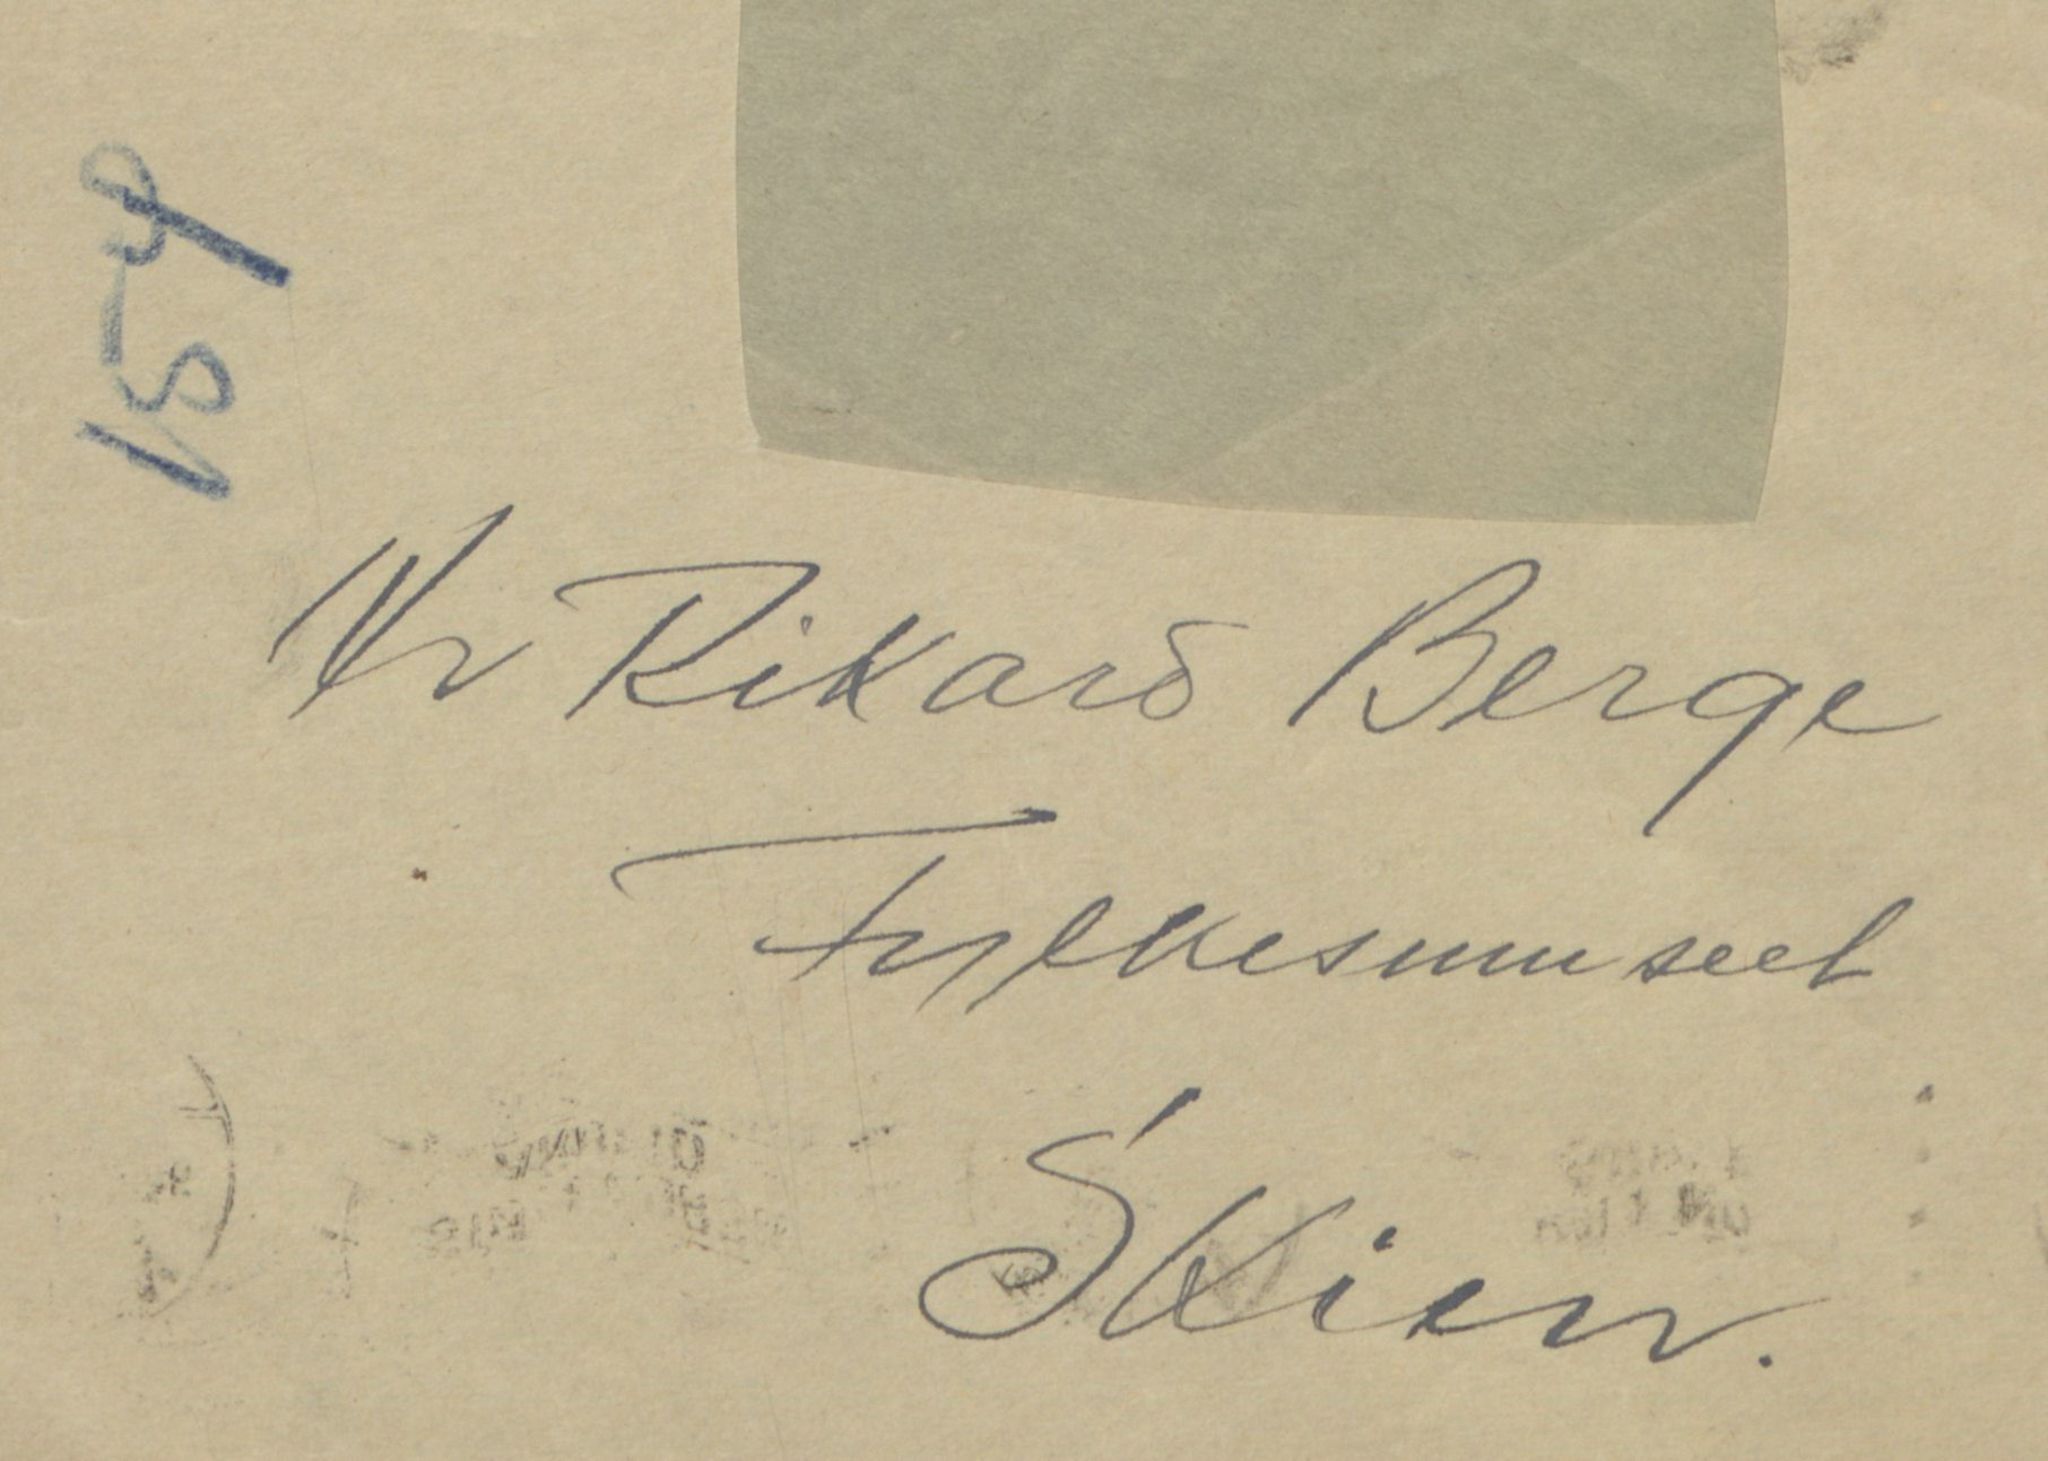 154
Hr Rikard Berge
Fylkesmuseet
Skien.